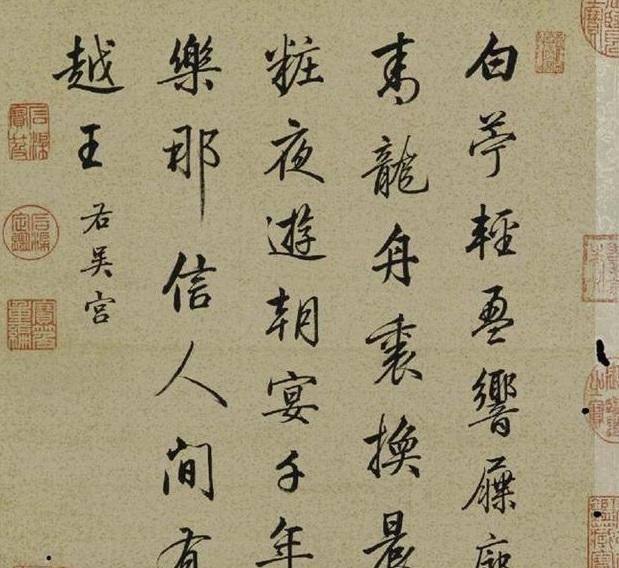 白苧輕盈響屧廊
青龍舟裊換晨
粧夜遊朝宴千年
樂那信人間有
越王
右吳宮